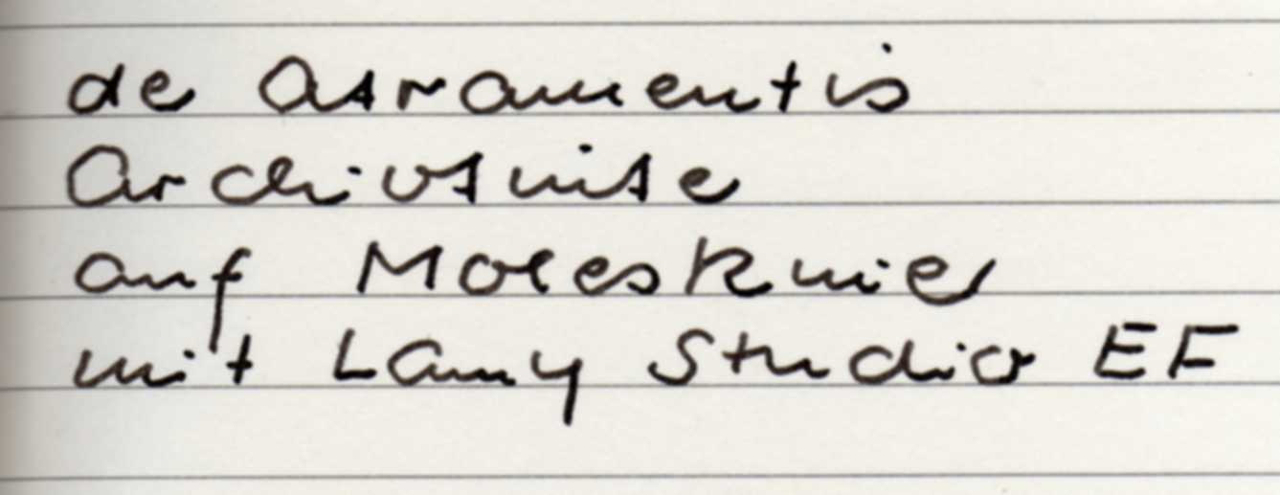 de Atramentis
Archivtinte
auf Moleskine
mit Lamy Studio EF